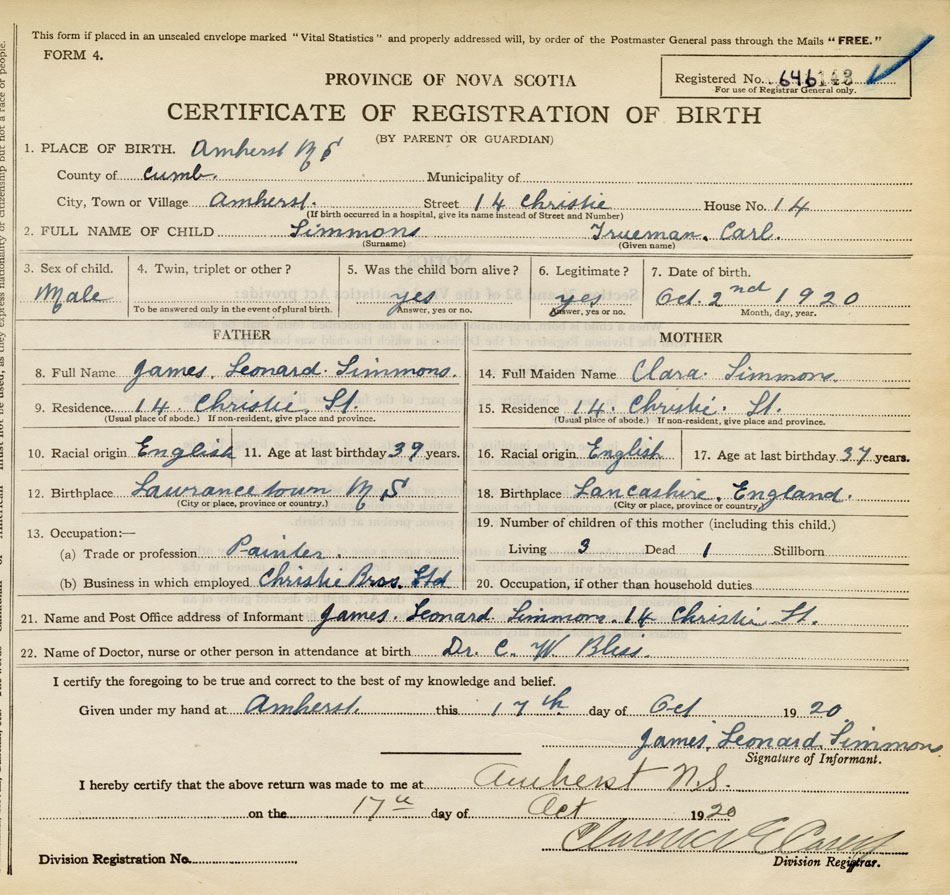 This form if placed in an unsealed envelope marked "Vital Statistics" and properly addressed will, by order of the Postmaster General pass through the Mails "FREE."
FORM 4.
PROVINCE OF NOVA SCOTIA
Registered No. 646143
For use of Registrar General only.
CERTIFICATE OF REGISTRATION OF BIRTH
(BY PARENT OR GUARDIAN)
1. PLACE OF BIRTH. Amherst N S
County of Cumb. Municipality of
City, Town or Village Amherst. Street 14 Christie House No. 14
(If birth occurred in a hospital, give its name instead of Street and Number)
2. FULL NAME OF CHILD Simmons Trueman. Carl.
(Surname) (Given name)
3. Sex of child. 4. Twin, triplet or other? 5. Was the child born alive? 6. Legitimate? 7. Date of birth.
Male yes yes Oct. 2nd 1920
To be answered only in the event of plural birth. Answer, yes or no. Answer, yes or no. Month, day, year.
FATHER MOTHER
8. Full Name James. Leonard. Simmons. 14. Full Maiden Name Clara. Simmons.
9. Residence. 14. Christie. St. 15. Residence 14. Christie. St.
(Usual place of abode.) If non-resident, give place and province. (Usual place of abode.) If non-resident, give place and province.
10. Racial origin English 11. Age at last birthday 39 years. 16. Racial origin English 17. Age at last birthday 37 years.
12. Birthplace Lawrancetown N S 18. Birthplace Lancashire. England.
(City or place, province or country.) (City or place, province or country)
13. Occupation:— 19. Number of children of this mother (including this child.)
(a) Trade or profession Painter. Living 3 Dead 1 Stillborn
(b) Business in which employed Christie Bros. Ltd 20. Occupation, if other than household duties
21. Name and Post Office address of Informant James. Leonard. Simmons. 14 Christie St.
22. Name of Doctor, nurse or other person in attendance at birth Dr. C. W Bliss.
I certify the foregoing to be true and correct to the best of my knowledge and belief.
Given under my hand at Amherst. this 17th day of Oct 1920
James. Leonard. Simmons
Signature of Informant.
I hereby certify that the above return was made to me at Amherst N.S.
on the 17th day of Oct 1920
Clarence E Casey
Division Registration No. Division Registrar.